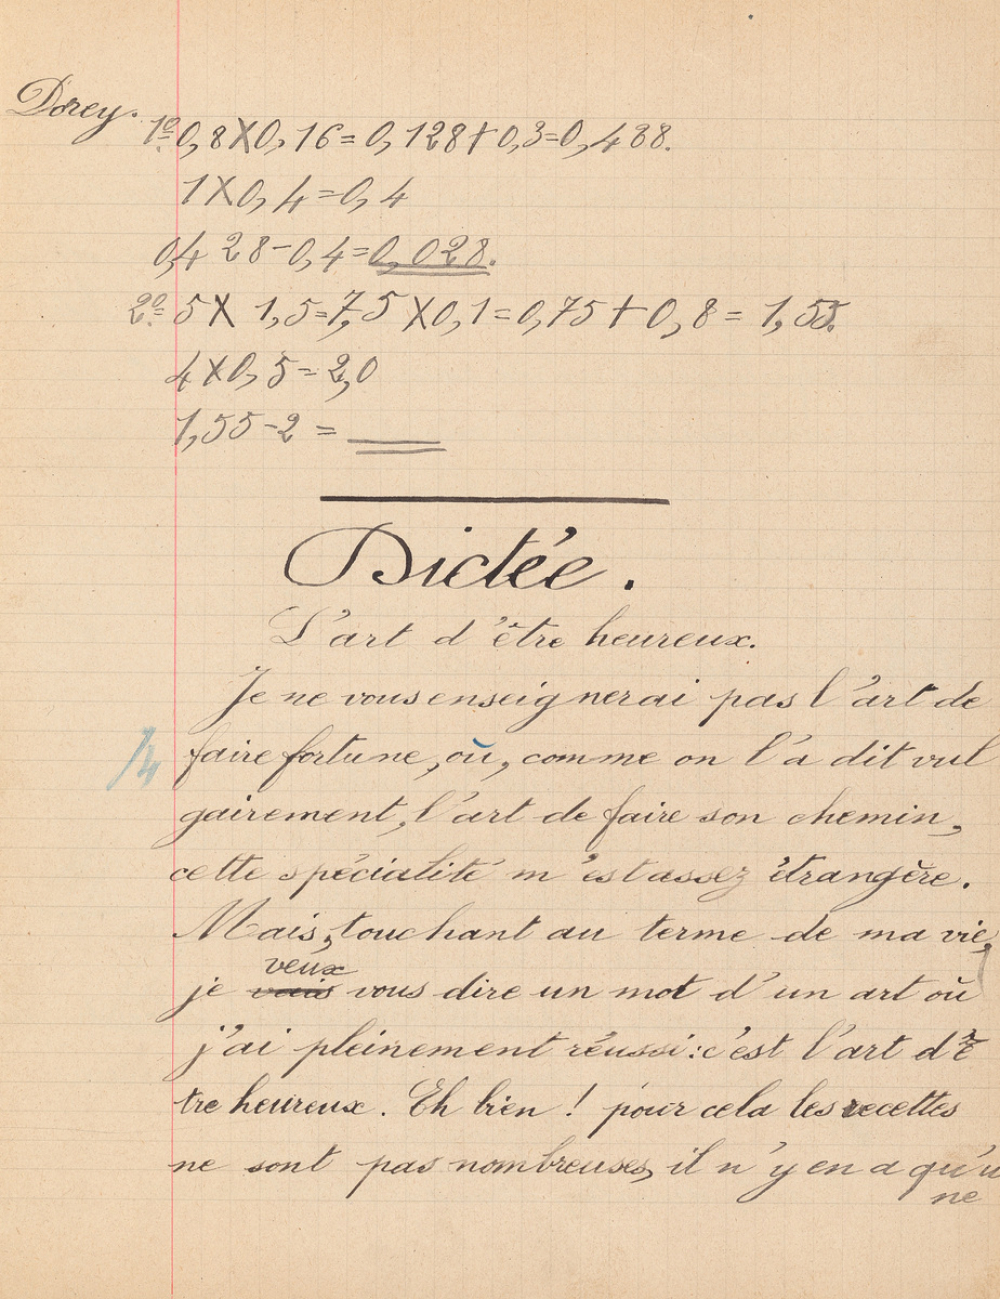 Dorey.
1º 0,8X0,16=0,128+0,3=0,438.
1X0,4=0,4
0,428-0,4=0,028.
2º= 5X 1,5=7,5 X0,1=0,75+0,8= 1,55.
4X0,5=2,0
1,55-2 =
Dictée.
L'art d'être heureux.
Je ne vous enseignerai pas l'art de
faire fortune, où, comme on l'a dit vul
gairement, l'art de faire son chemin,
cette spécialité m'est assez étrangère.
Mais, touchant au terme de ma vie,
veux
je vais vous dire un mot d'un art où
j'ai pleinement réussi: c'est l'art d'ê
tre heureux. Eh bien ! pour cela les recettes
ne sont pas nombreuses, il n'y en a qu'u
ne